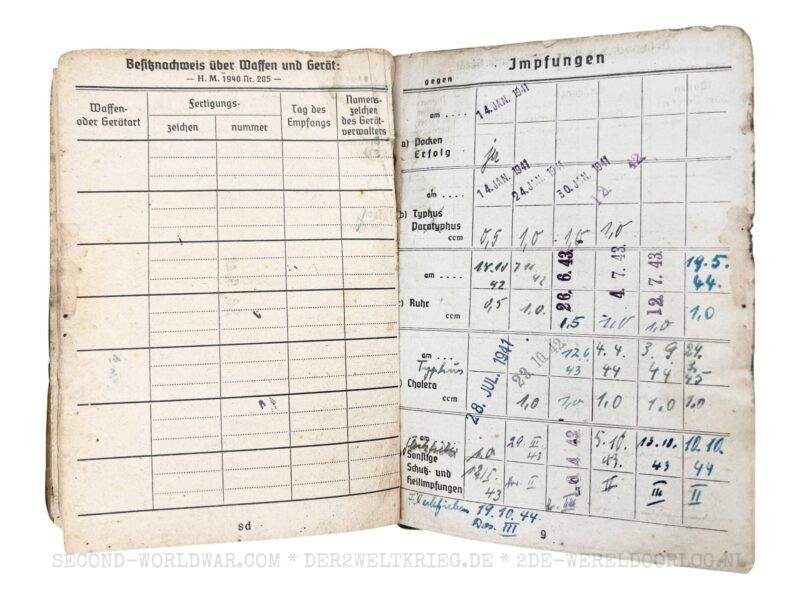 Besitznachweis über Waffen und Gerät:
— H. M. 1940 Nr. 205 —
Waffen- oder Gerätart
Fertigungs-
zeichen
nummer
Tag des Empfangs
Namens- zeichen des Gerät- verwalters
8d
Impfungen
gegen
am . . . . 14. JAN. 1941
a) Pocken
Erfolg ja
am . . . . 14. JAN. 1941 24. JAN. 1941 30. JAN. 1941 12. 42.
b) Typhus
Paratyphus
ccm 0,5 1,0 1,0
am . . . . 42 42 26. 6. 43 4. 7. 43 12. 7. 43 19.5. 44.
c) Ruhr
ccm 0,5 1.0 1,0 1,0 1,0
am . . . 28. JUL. 1941 28. 10. 42 43 4. 4. 44 3. 9 44 24. 45
Typhus
Cholera
ccm 1,0 1,0 1,0 1.0 1.0
am
Sonstige 1.0 29. III 43 43 5.10. 43. 13.10. 43 10.10. 44
Schutz- und
Heilimpfungen 43 II II III II
Fleckfieber 19.10.44.
Dos. III
9
SECOND-WORLDWAR.COM * DER2WELTKRIEG.DE * 2DE-WERELDOORLOG.NL